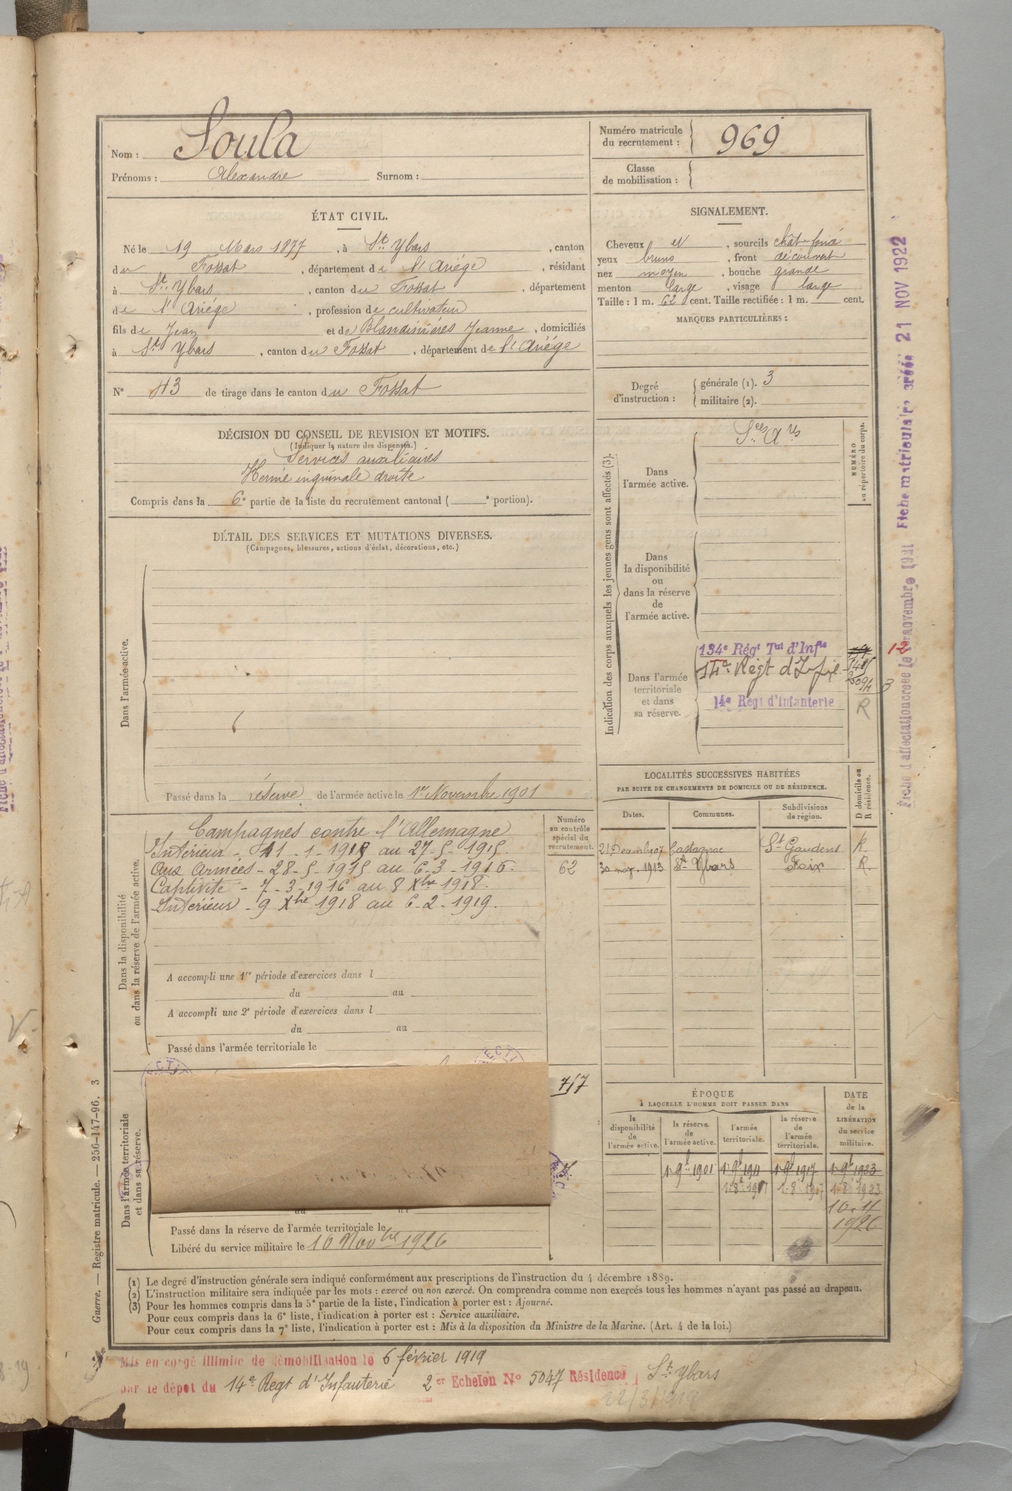 Nom : Soula
Prénoms : Alexandre Surnom :
Numéro matricule
du recrutement : 969
Classe
de mobilisation :
ÉTAT CIVIL.
Né le 19 Mars 1877, à St Ybars, canton
du Fossat, département de l'Ariége, résidant
à St Ybars, canton du Fossat, département
de l'Ariége, profession de cultivateur
fils de Jean et de Blandinières Jeanne, domiciliés
à St Ybars, canton du Fossat, département de l'Ariége
N° 43 de tirage dans le canton du Fossat
SIGNALEMENT.
Cheveux et, sourcils chât-foncé
yeux bruns, front découvert
nez moyen, bouche grande
menton large, visage large
Taille : 1 m. 62 cent. Taille rectifiée : 1 m. cent.
MARQUES PARTICULIÈRES :
Degré
d'instruction :
générale (1). 3
militaire (2).
DÉCISION DU CONSEIL DE REVISION ET MOTIFS.
(Indiquer la nature des dispenses.)
Services auxiliaires
Hernie inguinale droite
Compris dans la 6e partie de la liste du recrutement cantonal ( e portion).
DÉTAIL DES SERVICES ET MUTATIONS DIVERSES.
(Campagnes, blessures, actions d'éclat, décorations, etc.)
Dans l'armée active.
Passé dans la réserve de l'armée active le 1er Novembre 1901
Indication des corps auxquels les jeunes gens sont affectés (3).
Dans
l'armée active.
Sces Ares
NUMÉRO
au répertoire du corps.
Dans
la disponibilité
ou
dans la réserve
de
l'armée active.
Dans l'armée
territoriale
et dans
sa réserve.
134e Régt Tal d'Infie
14e Régt d'Infie
14e Régt d'Infanterie
R
12
3
Dans la disponibilité
ou dans la réserve de l'armée active.
Campagnes contre l'Allemagne
Intérieur - 11-1-1915 au 27-5-1915
Aux Armées - 28-5-1915 au 6-3-1916.
Captivité - 7-3-1916 au 8 Xbre 1918.
Intérieur - 9 Xbre 1918 au 6-2-1919.
Numéro
au contrôle
spécial du
recrutement.
62
A accompli une 1re période d'exercices dans l
du au
A accompli une 2e période d'exercices dans l
du au
Passé dans l'armée territoriale le
LOCALITÉS SUCCESSIVES HABITÉES
PAR SUITE DE CHANGEMENTS DE DOMICILE OU DE RÉSIDENCE.
Dates.
Communes.
Subdivisions
de région.
D domicile ou
R résidence.
Castagnac St Gaudens R.
1913 St Ybars Foix R.
Dans l'armée territoriale
et dans sa réserve.
717
Passé dans la réserve de l'armée territoriale le
Libéré du service militaire le 10 Novbre 1926
ÉPOQUE
A LAQUELLE L'HOMME DOIT PASSER DANS
la
disponibilité
de
l'armée active.
la réserve
de
l'armée active.
l'armée
territoriale.
la réserve
de
l'armée
territoriale.
DATE
de la
LIBÉRATION
du service
militaire.
1-9b 1901 1-9b 1911 1-9b 1917 1-9b 1923
1-8-1923
10-11
1926
(1) Le degré d'instruction générale sera indiqué conformément aux prescriptions de l'instruction du 4 décembre 1889.
(2) L'instruction militaire sera indiquée par les mots : exercé ou non exercé. On comprendra comme non exercés tous les hommes n'ayant pas passé au drapeau.
(3) Pour les hommes compris dans la 5e partie de la liste, l'indication à porter est : Ajourné.
Pour ceux compris dans la 6e liste, l'indication à porter est : Service auxiliaire.
Pour ceux compris dans la 7e liste, l'indication à porter est : Mis à la disposition du Ministre de la Marine. (Art. 4 de la loi.)
Guerre. — Registre matricule. — 256-147-96. 3
Mis en congé illimité de démobilisation le 6 février 1919
par le dépôt du 14e Regt d'Infanterie 2er Echelon No 5047 Résidence St Ybars
22/3/1919
Fiche matriculaire créée 21 NOV 1922